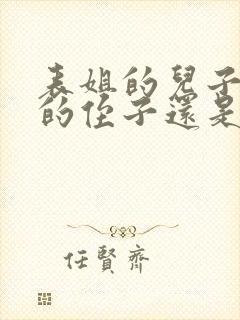 表姐的兒子
的侄子還是
任賢齊